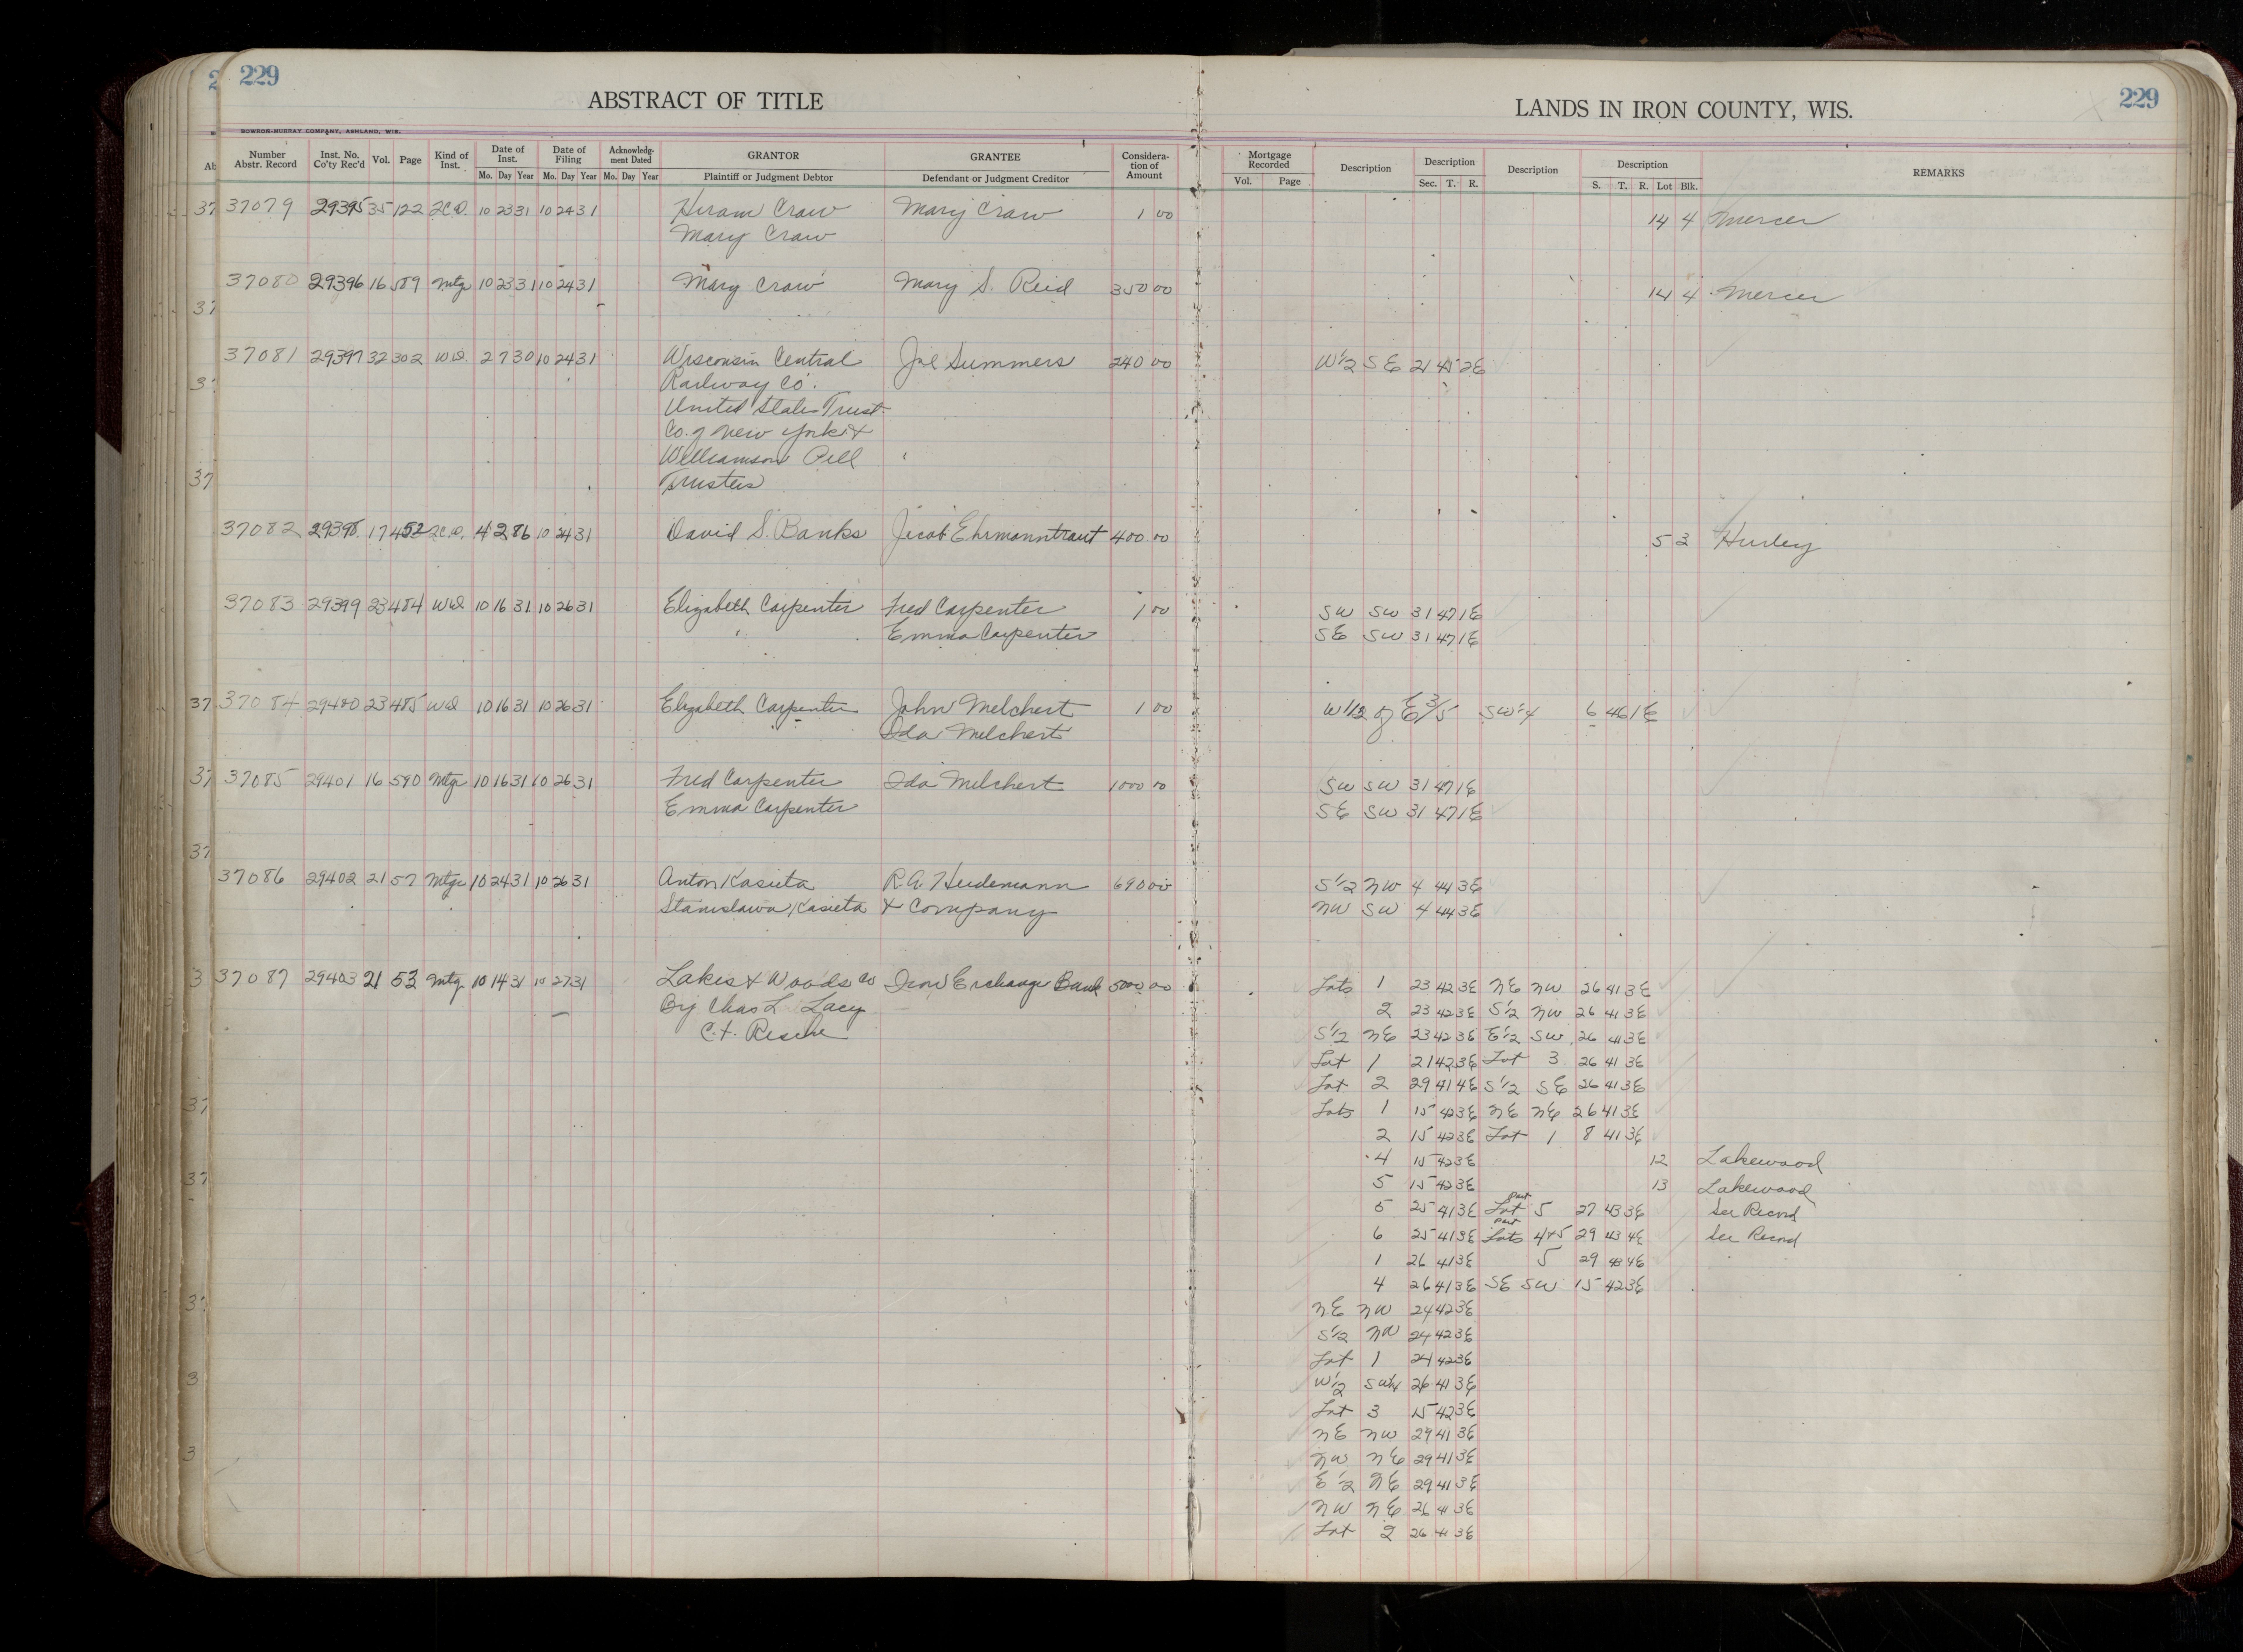 229
ABSTRACT OF TITLE
LANDS IN IRON COUNTY, WIS.
229
BOWRON-MURRAY COMPANY, ASHLAND, WIS.
Number Abstr. Record Inst. No. Co'ty Rec'd Vol. Page Kind of Inst. Date of Inst. Mo. Day Year Date of Filing Mo. Day Year Acknowledg-ment Dated Mo. Day Year GRANTOR Plaintiff or Judgment Debtor GRANTEE Defendant or Judgment Creditor Considera-tion of Amount Mortgage Recorded Vol. Page Description Description Sec. T. R. Description Description S. T. R. Lot Blk. REMARKS
37079 29395 35 122 2C.D. 10 23 31 10 24 31 Hiram Craw Mary Craw 1 00 14 4 Mercer
Mary Craw
37080 29396 16 589 Mtg 10 23 31 10 24 31 Mary Craw Mary S. Reid 350 00 14 4 Mercer
37081 29397 32 302 WD. 2 7 30 10 24 31 Wisconsin Central Joe Summers 240 00 W1/2 SE 21 45 2E
Railway Co.
United States Trust
Co. of New York &
Williamson Pell
Trustees
37082 29398 17 452 2C.D. 4 2 86 10 24 31 David S. Banks Jacob Ehrmanntraut 400 00 5 2 Hurley
37083 29399 23 484 WD 10 16 31 10 26 31 Elizabeth Carpenter Fred Carpenter 1 00 SW SW 31 47 1E
Emma Carpenter SE SW 31 47 1E
37084 29400 23 485 WD 10 16 31 10 26 31 Elizabeth Carpenter John Melchert 1 00 W1/2 of E3/5 SW1/4 6 46 1E
Ida Melchert
37085 29401 16 590 Mtg 10 16 31 10 26 31 Fred Carpenter Ida Melchert 1000 00 SW SW 31 47 1E
Emma Carpenter SE SW 31 47 1E
37086 29402 21 57 Mtg 10 24 31 10 26 31 Anton Kasieta R.A. Heidemann 690 00 S1/2 NW 4 44 3E
Stanislawa Kasieta & Company NW SW 4 44 3E
37087 29403 21 53 Mtg 10 14 31 10 27 31 Lakes & Woods Co Iron Exchange Bank 5000 00 Lots 1 23 42 3E NE NW 26 41 3E
By Chas L Lacy 2 23 42 3E S1/2 NW 26 41 3E
S1/2 NE 23 42 3E E1/2 SW 26 41 3E
Lot 1 21 42 3E Lot 3 26 41 3E
Lot 2 29 41 4E S1/2 SE 26 41 3E
Lots 1 15 42 3E NE NE 26 41 3E
2 15 42 3E Lot 1 8 41 3E
4 15 42 3E 12 Lakewood
5 15 42 3E 13 Lakewood
5 25 41 3E part Lot 5 27 43 3E See Record
6 25 41 3E part Lots 4+5 29 43 4E See Record
1 26 41 3E 5 29 43 4E
4 26 41 3E SE SW 15 42 3E
NE NW 24 42 3E
S1/2 NW 24 42 3E
Lot 1 24 42 3E
W1/2 SW1/4 26 41 3E
Lot 3 15 42 3E
NE NW 29 41 3E
NW NE 29 41 3E
E1/2 NE 29 41 3E
NW NE 26 41 3E
Lot 2 26 41 3E